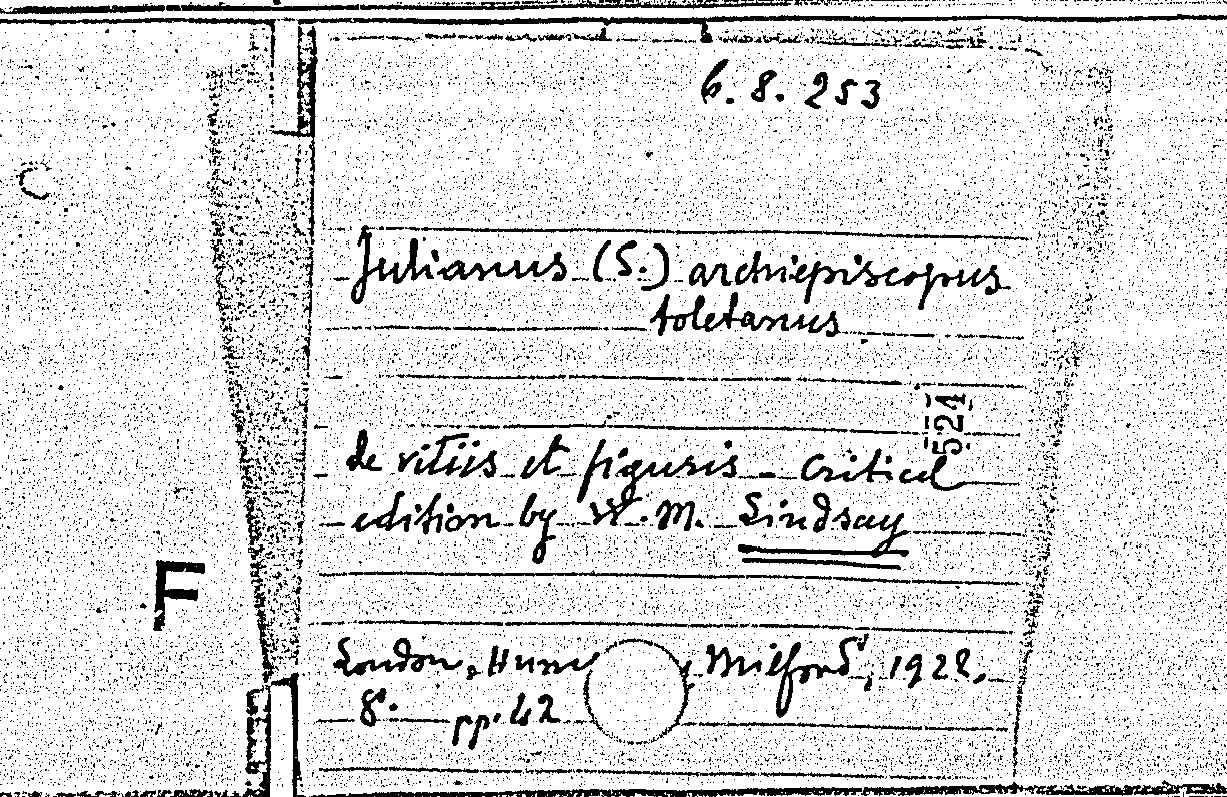 6. 8. 253
C
Julianus (S.) archiepiscopus
toletanus
524
de vitiis et figuris - critical
edition by W. M. Lindsay
F
London, Milford, 1922.
8°. pp. 42